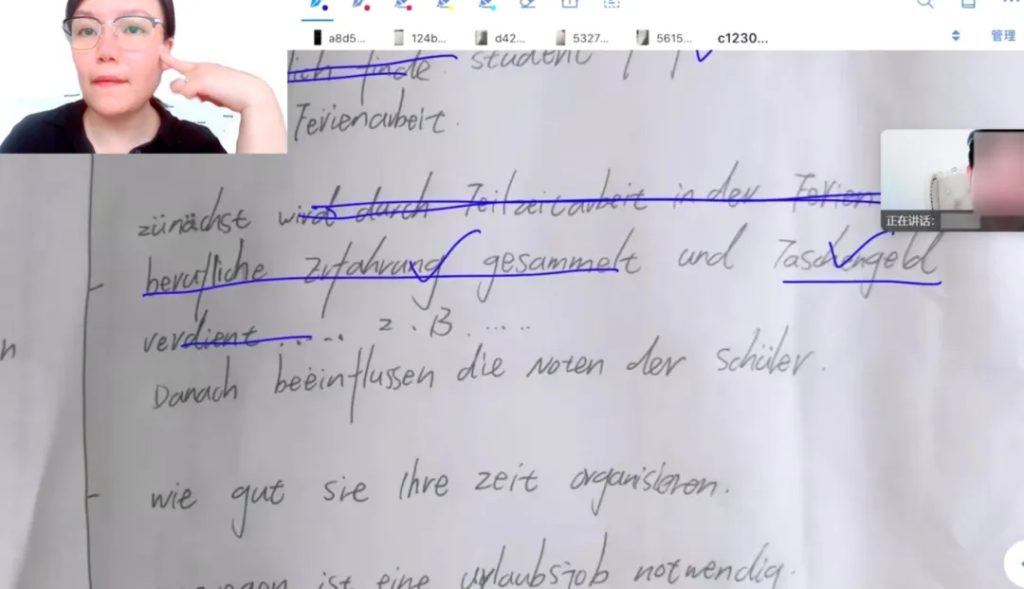 a8d5... 124b... d42... 5327... 5615... c1230... 管理
ich finde student
Ferienarbeit.
正在讲话:
zünächst wird durch Teilzeitarbeit in der Ferien
berufliche Erfahrung gesammelt und Taschengeld
verdient ..... z.B. .....
n
Danach beeinflussen die Noten der Schüler.
wie gut sie Ihre zeit organisieren.
ist eine urlaubsjob notwendig.